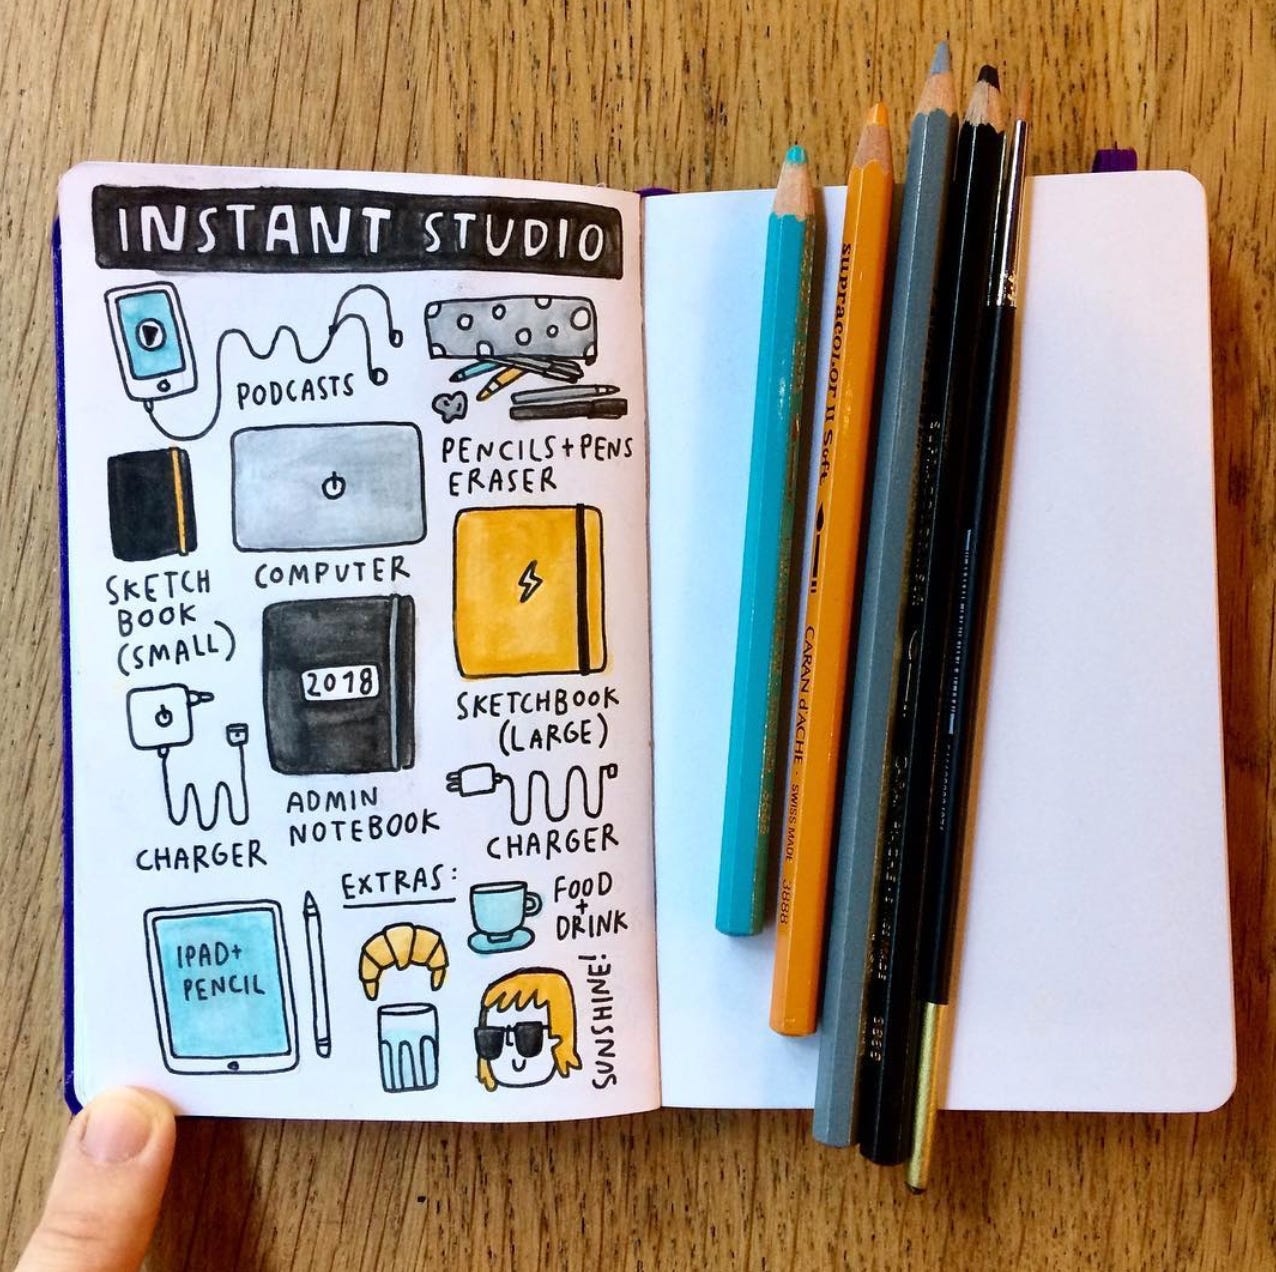 INSTANT STUDIO
PODCASTS
PENCILS + PENS
ERASER
SKETCH
BOOK
(SMALL)
COMPUTER
2018
ADMIN
NOTEBOOK
SKETCHBOOK
(LARGE)
CHARGER
CHARGER
IPAD+
PENCIL
EXTRAS:
FOOD
+
DRINK
SUNSHINE!
supracolor II Soft
CARAN d'ACHE · SWISS MADE 3888